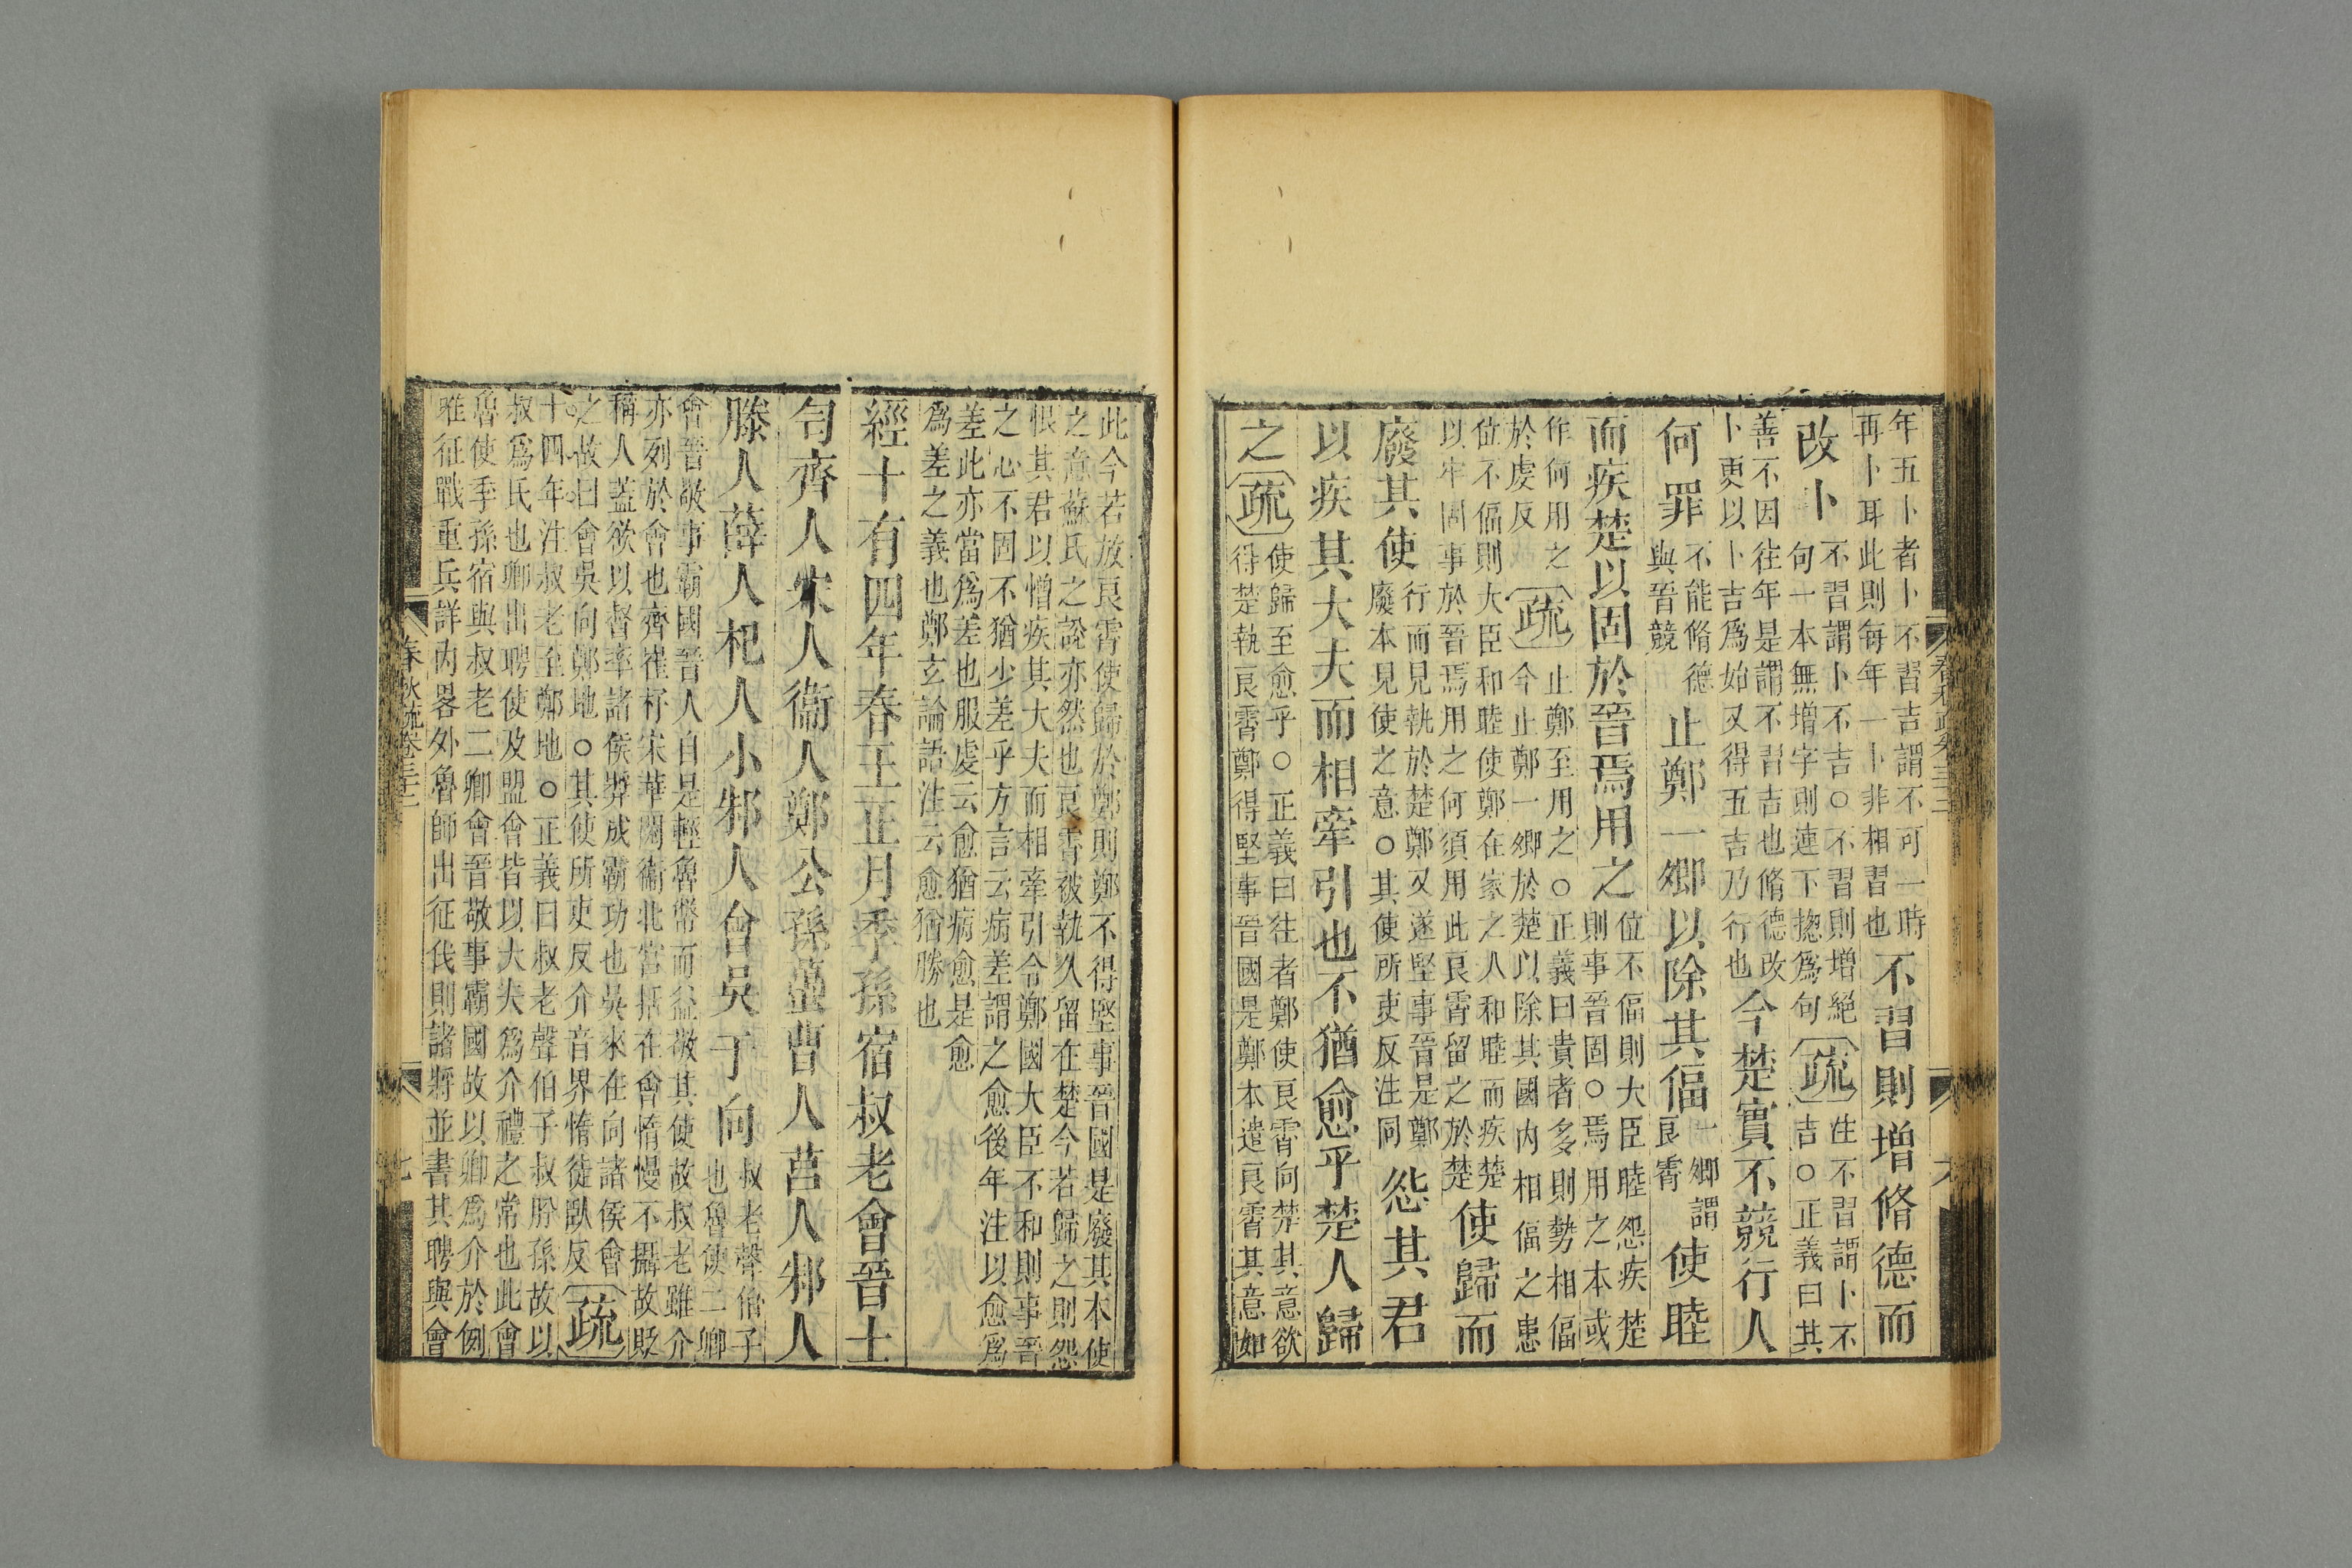 年五卜者卜不習吉謂不可一時
再卜耳此則每年一卜非相習也
不習則增脩德而
改卜
不習謂卜不吉○不習則增絕
句一本無增字則連下揔爲句
疏
往不習謂卜不
吉○正義曰其
善不因往年是謂不習吉也脩德改
卜更以卜吉爲始又得五吉乃行也
今楚實不競行人
何罪
不能脩德
與晉競
止鄭一卿以除其偪
一卿謂
良霄
使睦
而疾楚以固於晉焉用之
位不偪則大臣睦怨疾楚
則事晉固○焉用之本或
作何用之
於虔反
疏
止鄭至用之○正義曰貴者多則勢相偪
今止鄭一卿於楚以除其國內相偪之患
位不偪則大臣和睦使鄭在家之人和睦而疾楚
以牢固事於晉焉用之何須用此良霄留之於楚
使歸而
廢其使
行而見執於楚鄭又遂堅事晉是鄭
廢本見使之意○其使所吏反注同
怨其君
以疾其大夫而相牽引也不猶愈乎楚人歸
之
疏
使歸至愈乎○正義曰往者鄭使良霄向楚其意欲
得楚執良霄鄭得堅事晉國是鄭本遣良霄其意如
此今若放良霄使歸於鄭則鄭不得堅事晉國是廢其本使
之意蘇氏之說亦然也良霄被執久留在楚今若歸之則怨
恨其君以憎疾其大夫而相牽引令鄭國大臣不和則事晉
之心不固不猶少差乎方言云病差謂之愈後年注以愈爲
差此亦當爲差也服虔云愈猶病愈是愈
爲差之義也鄭玄論語注云愈猶勝也
經十有四年春王正月季孫宿叔老會晉士
匄齊人宋人衞人鄭公孫蠆曹人莒人邾人
滕人薛人杞人小邾人會吳于向
叔老聲伯子
也魯使二卿
會晉敬事霸國晉人自是輕魯幣而益敬其使故叔老雖介
亦列於會也齊崔杼宋華閱衞北宮括在會惰慢不攝故貶
稱人蓋欲以督率諸侯奬成霸功也吳來在向諸侯會
之故曰會吳向鄭地○其使所吏反介音界惰徒臥反
疏
十四年注叔老至鄭地○正義曰叔老聲伯子叔肸孫故以
叔爲氏也卿出聘使及盟會皆以大夫爲介禮之常也此會
魯使季孫宿與叔老二卿會晉敬事霸國故以卿爲介於例
唯征戰重兵詳內畧外魯師出征伐則諸將並書其聘與會
春秋疏卷三十二
七